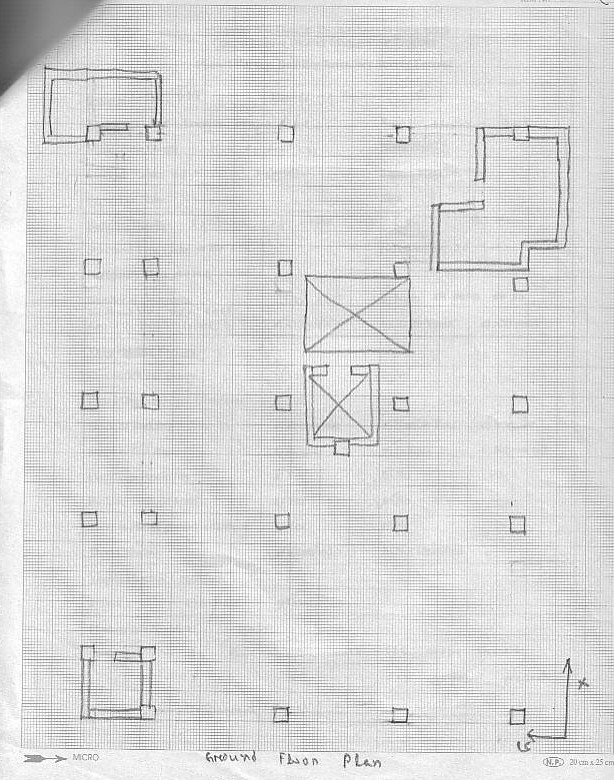 x
MICRO
Ground Floor Plan
N.P. 20 cm x 25 cm